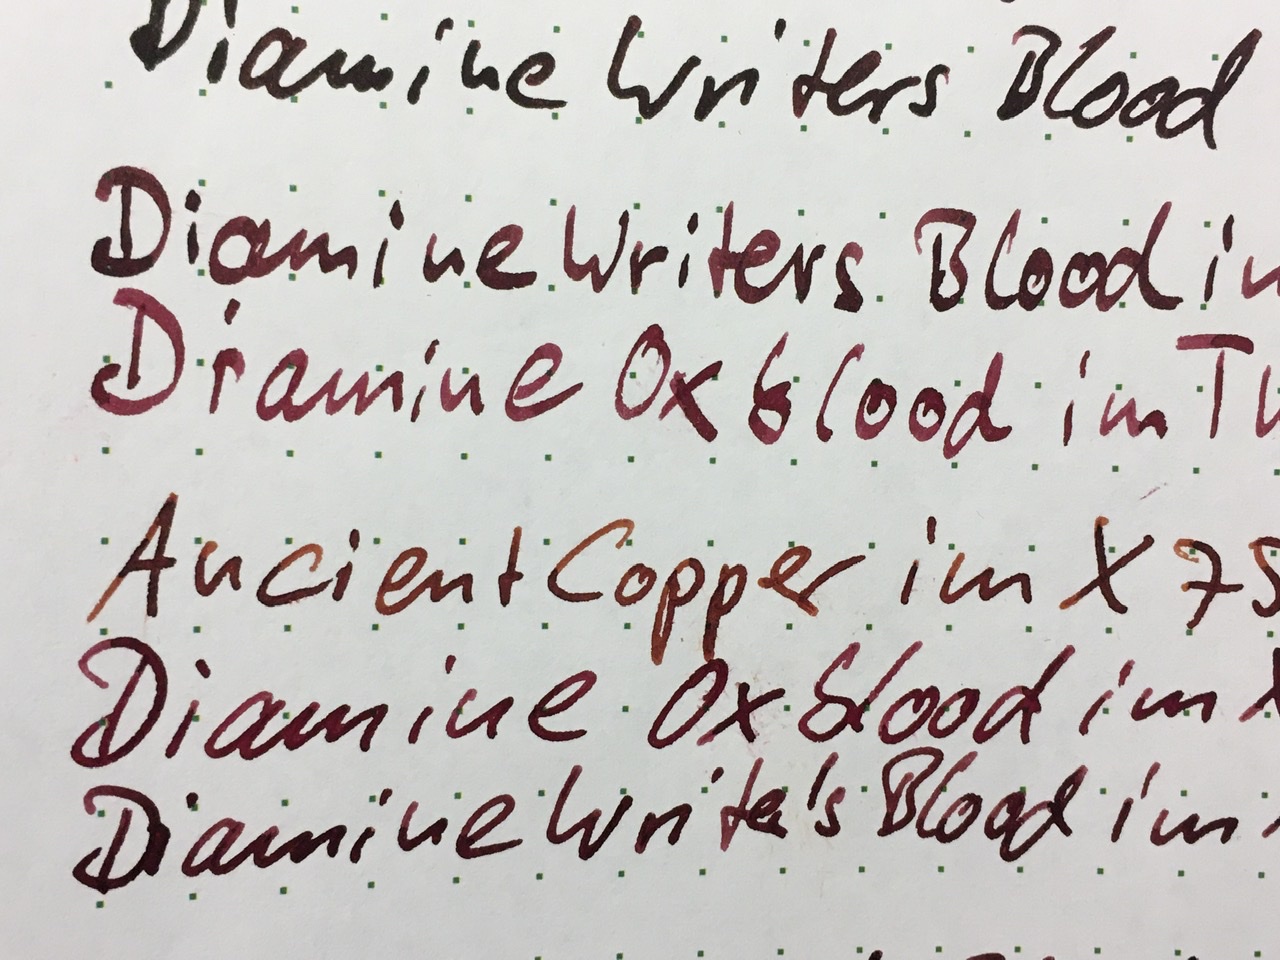 Diamine Writers Blood
Diamine Writers Blood im
Diamine Oxblood im
Ancient Copper im X 75
Diamine Oxblood im
Diamine Write's Blood im